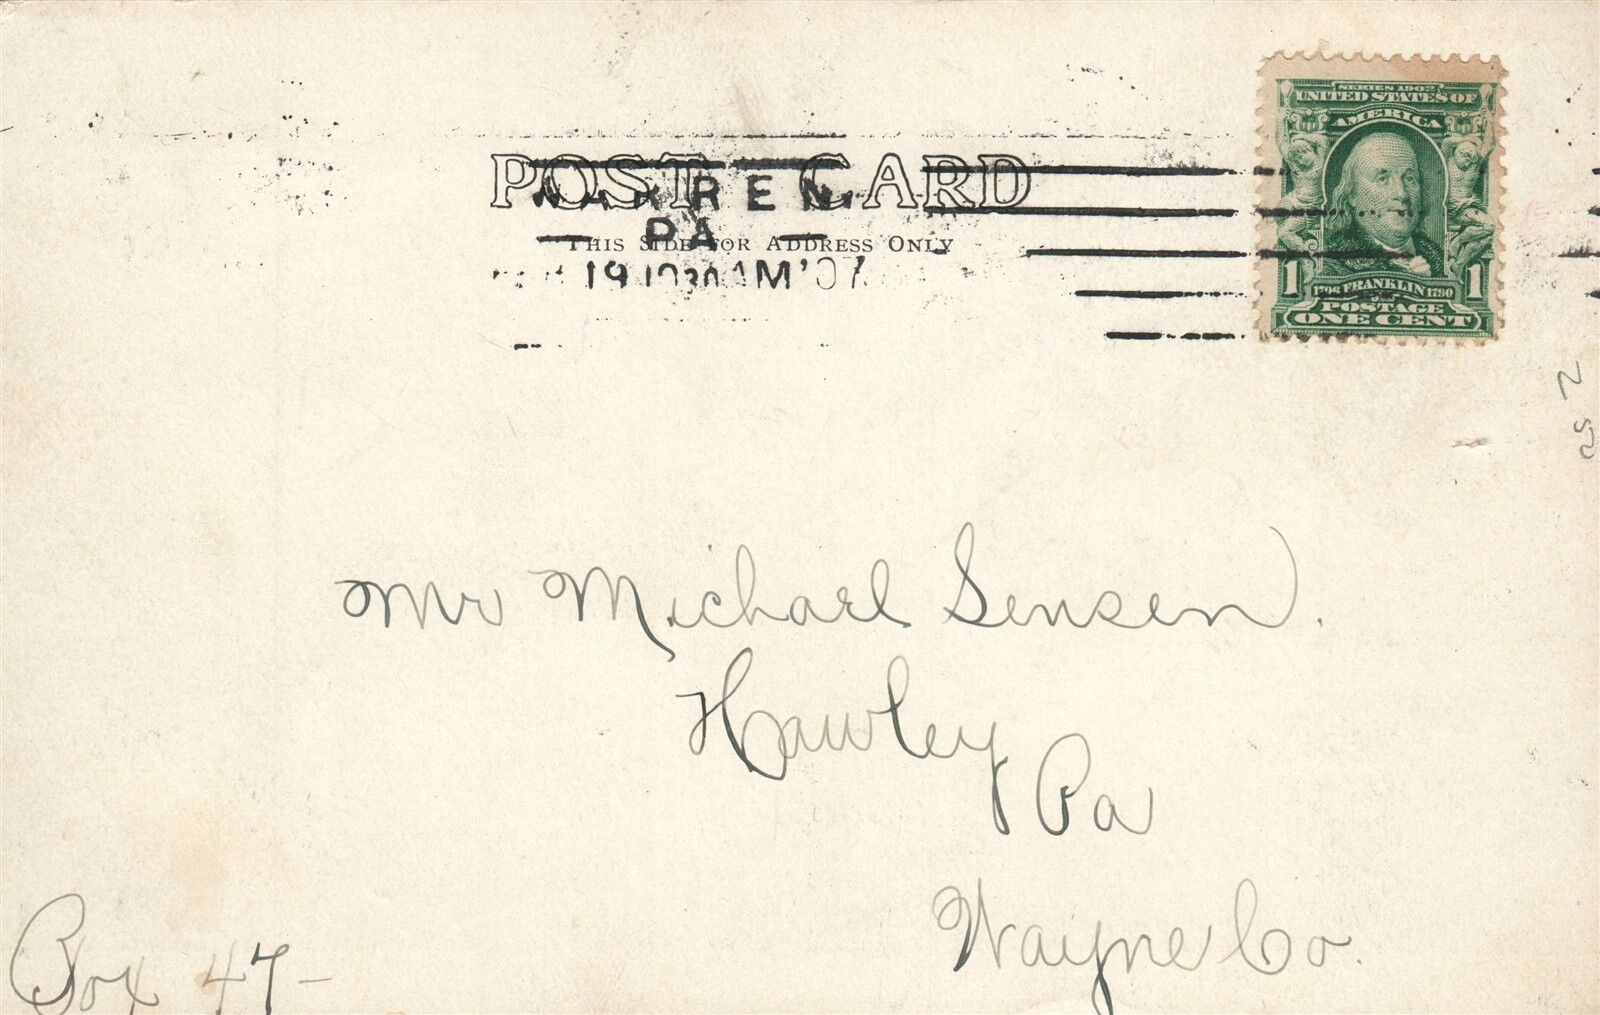 POST CARD
WARREN
PA
THIS SIDE FOR ADDRESS ONLY
19 1030AM '07
SERIES 1902
UNITED STATES OF
AMERICA
1 1706 FRANKLIN 1790 1
POSTAGE
ONE CENT
Mr Michael Sensen.
Hawley
Pa
Wayne Co.
Box 47-